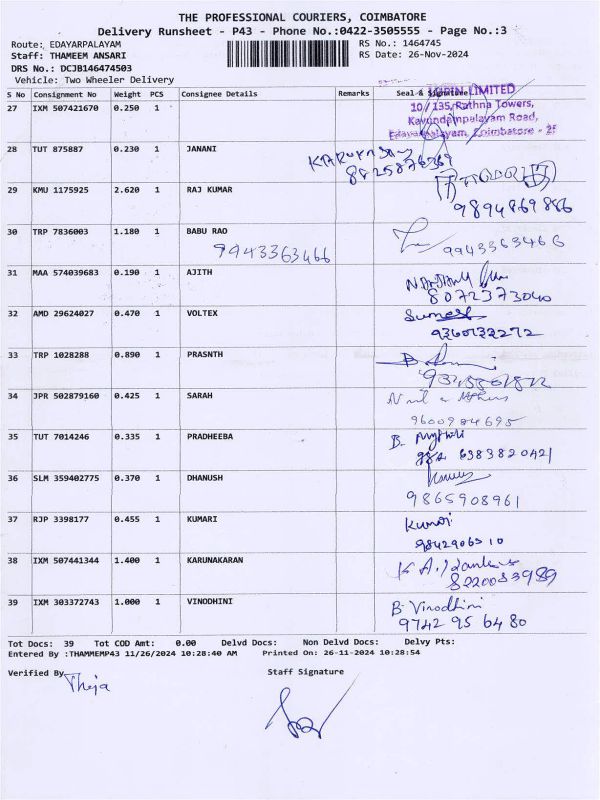 THE PROFESSIONAL COURIERS, COIMBATORE
Delivery Runsheet - P43 - Phone No.:0422-3505555 - Page No.:3
Route: EDAYARPALAYAM RS No.: 1464745
Staff: THAMEEM ANSARI RS Date: 26-Nov-2024
DRS No.: DCJB146474503
Vehicle: Two Wheeler Delivery
S No Consignment No Weight PCS Consignee Details Remarks Seal & Signature
LIMITED
27 IXM 507421670 0.250 1
10/135, Rathna Towers,
Kavundampalayam Road,
Edayarpalayam, Coimbatore - 25
28 TUT 875887 0.230 1 JANANI
8825876369
29 KMU 1175925 2.620 1 RAJ KUMAR
9894869886
30 TRP 7836003 1.180 1 BABU RAO
9943363466 9943363466
31 MAA 574039683 0.190 1 AJITH
8072373040
32 AMD 29624027 0.470 1 VOLTEX
Sumesh
9360132272
33 TRP 1028288 0.890 1 PRASNTH
34 JPR 502879160 0.425 1 SARAH
9600984695
35 TUT 7014246 0.335 1 PRADHEEBA B. Mythili
6383820421
36 SLM 359402775 0.370 1 DHANUSH
9865908961
37 RJP 3398177 0.455 1 KUMARI Kumari
9842906510
38 IXM 507441344 1.400 1 KARUNAKARAN
8220083989
39 IXM 303372743 1.000 1 VINODHINI B. Vinodhini
9742 95 6480
Tot Docs: 39 Tot COD Amt: 0.00 Delvd Docs: Non Delvd Docs: Delvy Pts:
Entered By :THAMMEMP43 11/26/2024 10:28:40 AM Printed On: 26-11-2024 10:28:54
Verified By Staff Signature
Theja